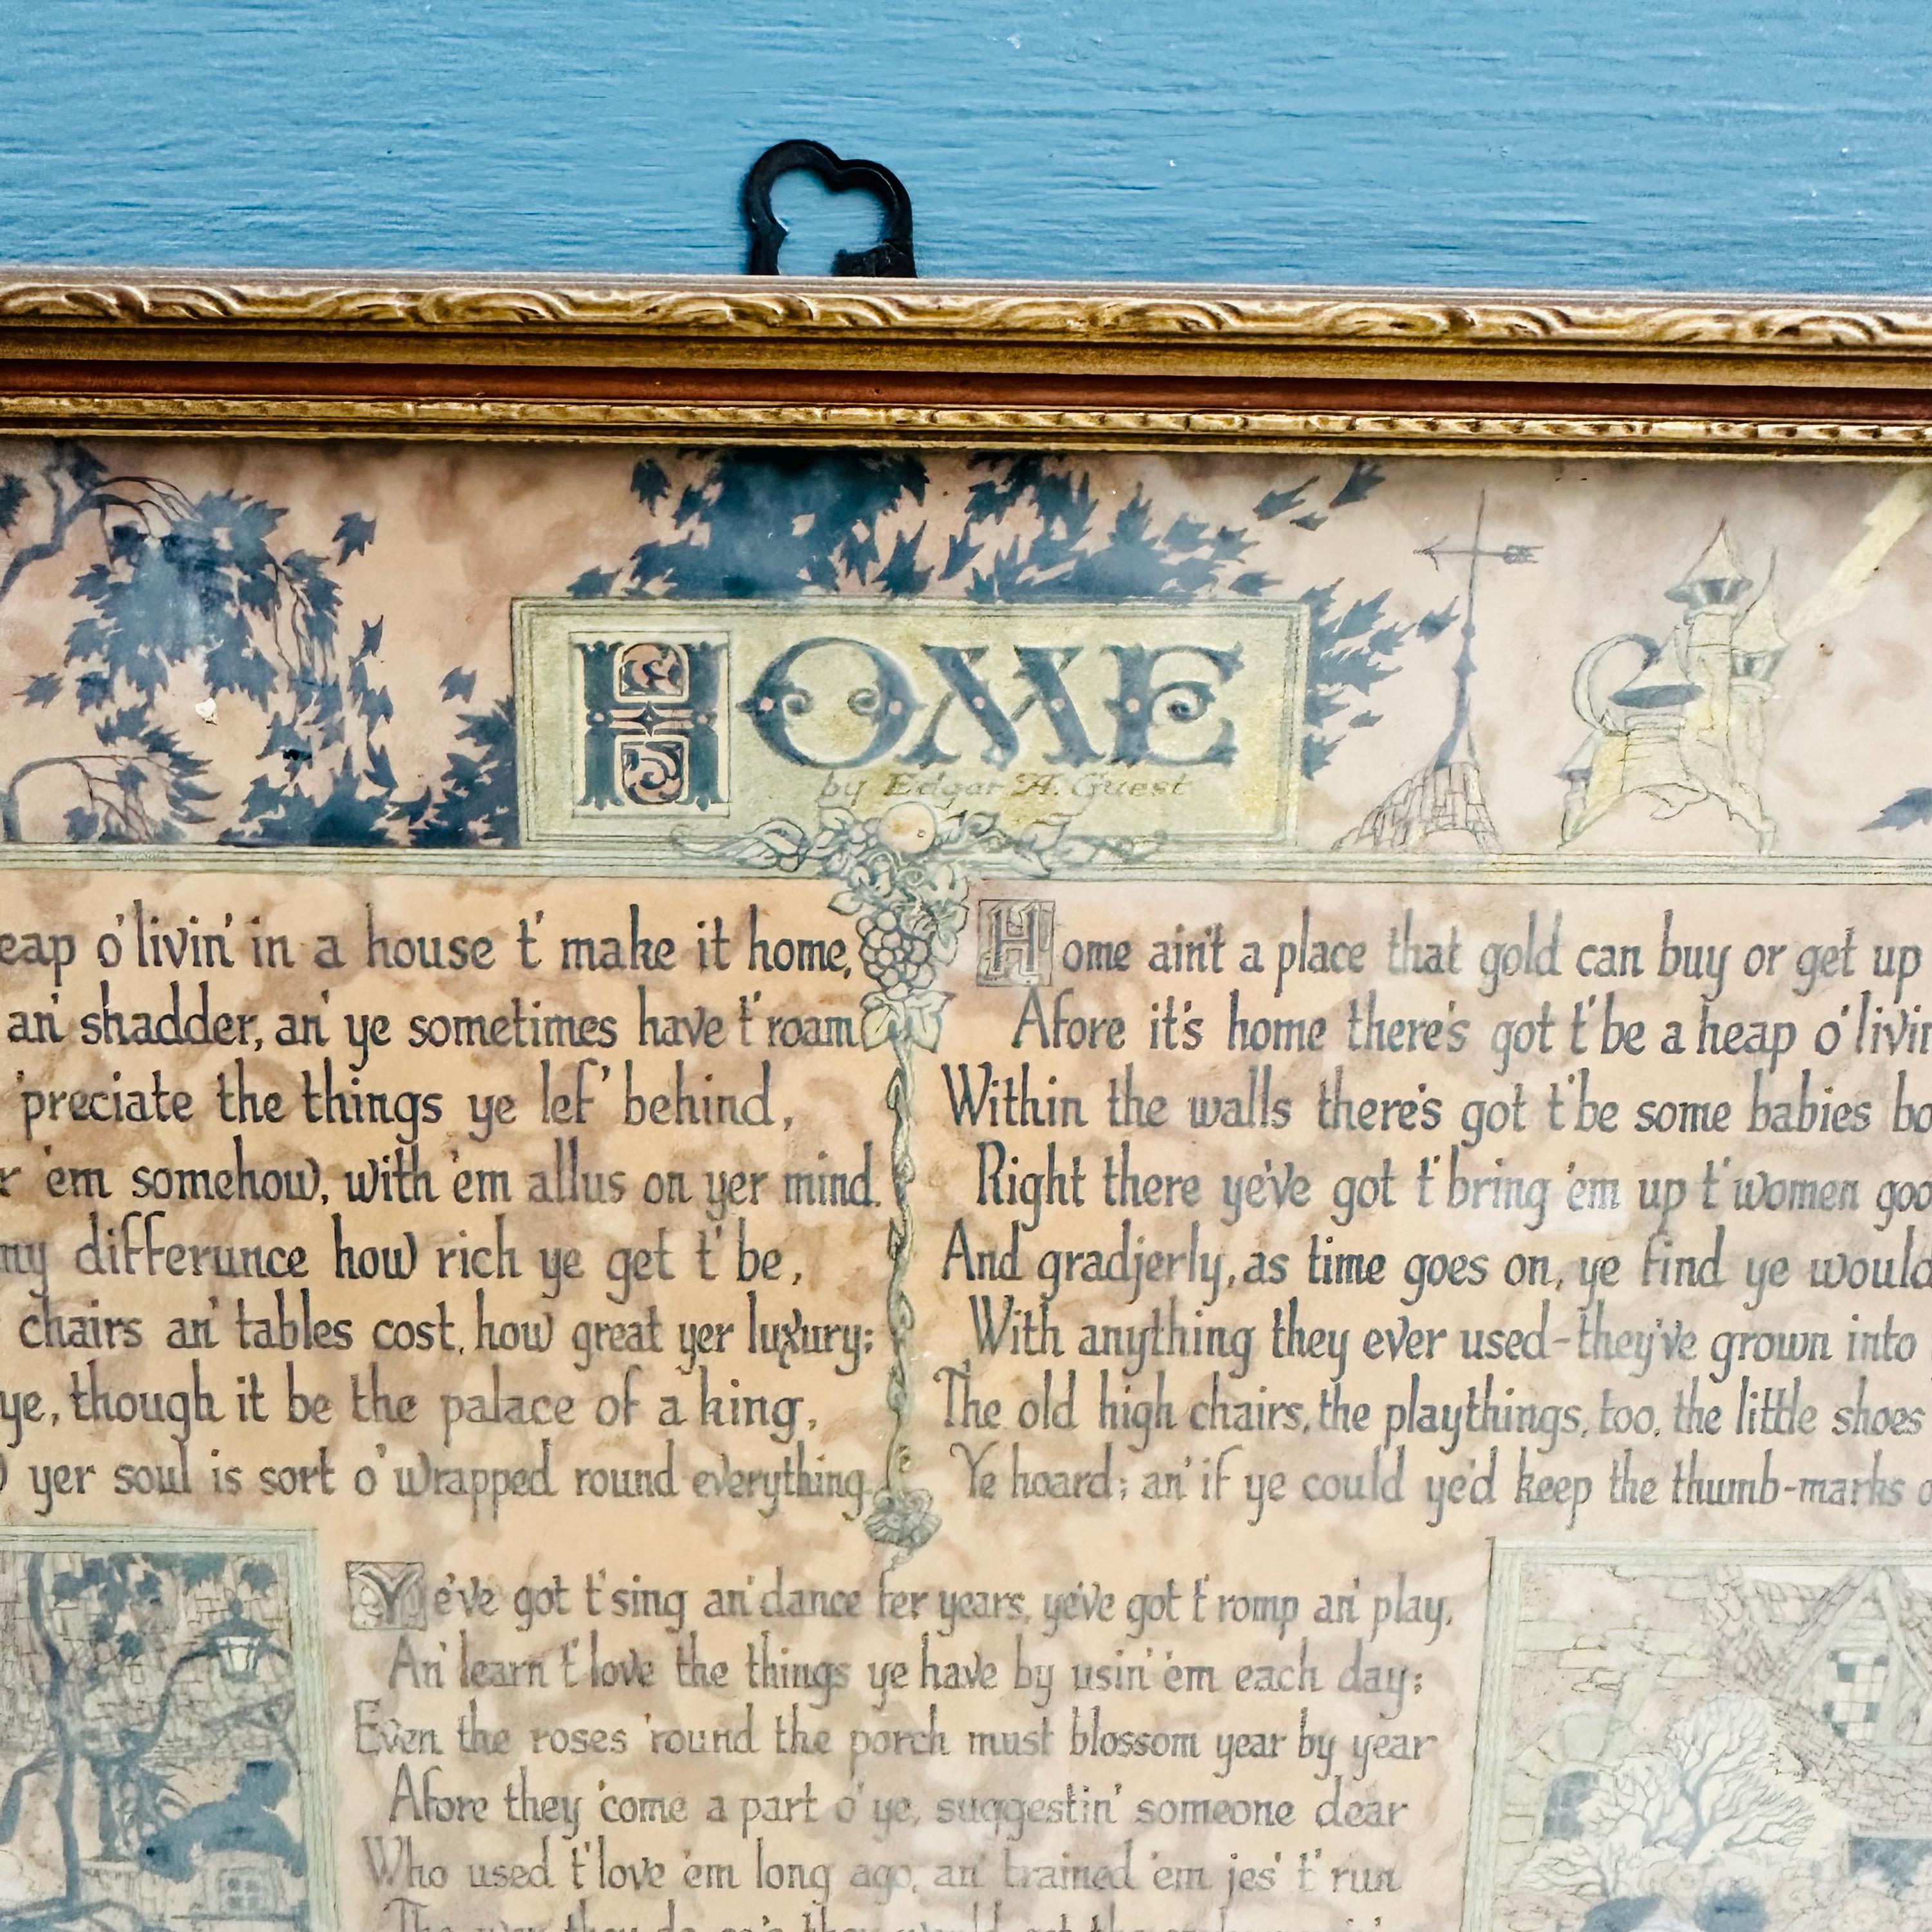 HOME
by Edgar A. Guest
eap o' livin' in a house t' make it home,
an' shadder, an' ye sometimes have t' roam
'preciate the things ye lef' behind,
r 'em somehow, with 'em allus on yer mind.
ny differunce how rich ye get t' be,
chairs an' tables cost, how great yer luxury;
ye, though it be the palace of a king,
yer soul is sort o' wrapped round everything.
Home ain't a place that gold can buy or get up
Afore it's home there's got t' be a heap o' livin
Within the walls there's got t' be some babies bo
Right there ye've got t' bring 'em up t' women goo
And gradjerly, as time goes on, ye find ye would
With anything they ever used-they've grown into
The old high chairs, the playthings, too, the little shoes
Ye hoard; an' if ye could ye'd keep the thumb-marks o
Ye've got t' sing an' dance fer years, ye've got t' romp an' play,
An' learn t' love the things ye have by usin' 'em each day;
Even the roses 'round the porch must blossom year by year
Afore they 'come a part o' ye, suggestin' someone dear
Who used t' love 'em long ago, an' trained 'em jes' t' run
The way they do